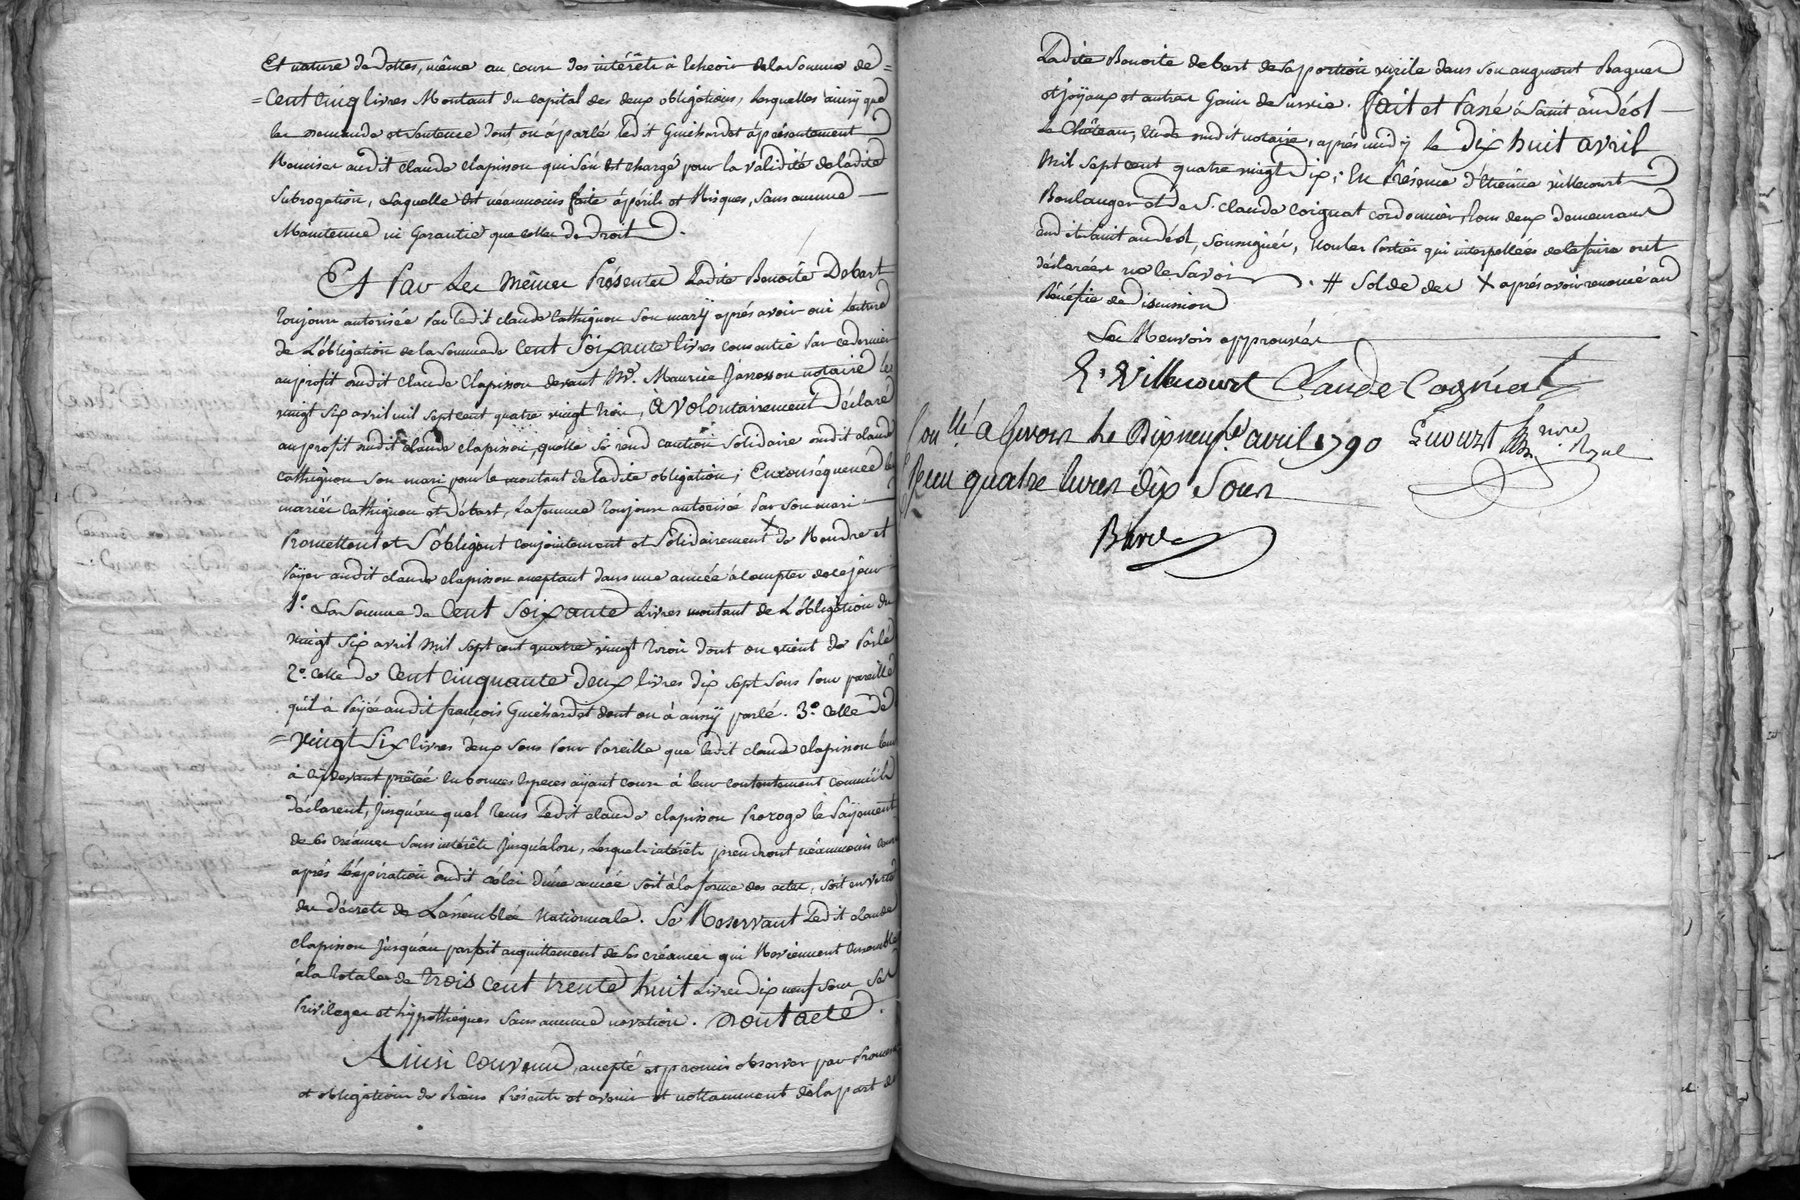 Et nature de dettes, même au cours des intérêts à Echeoir de la Somme de =
= Cent cinq livres Montant du capital des deux obligations, lesquelles ainsy que
les demande et Sentence dont on à parlé ledit Guichardet à présentement
Remises audit claude clapisson qui s'en est chargé pour la validité de ladite
Subrogation, Laquelle est néanmoins faite à périls et Risques, sans aucune
Maintenue ni Garantie que celle de Droit.
Et Par Les Mêmes Présentes Ladite Benoite Debart
Toujours autorisée par ledit claude Cathignon Son mary après avoir oui lecture
de L'obligation de la Somme de Cent Soixante livres consentie par ce dernier
au profit dudit claude Clapisson devant Me. Maurice notaire le
vingt six avril mil sept cent quatre vingt trois, a volontairement Déclaré
au profit dudit claude clapisson, quelle se rend caution solidaire dudit claude
Cathignon Son mari pour le montant de ladite obligation; En conséquence les
mariés Cathignon et Debart, la femme toujours autorisée par son mari
Promettent et S'obligent conjointement et Solidairement X de Rendre et
Payer audit claude clapisson acceptant dans une année à compter de ce jour
1°. La Somme de Cent Soixante livres montant de L'obligation du
vingt six avril mil sept cent quatre vingt trois dont on vient de Parler
2°. Celle de Cent cinquante deux livres dix sept sous pour pareille
qu'il à Payée audit françois Guichardet dont on à aussy parlé. 3°. Celle de
= vingt Six livres deux sous pour Pareille que ledit claude clapisson leur
à cy devant prêtée en bonnes Especes ayant cours à leur contentement comme ils
déclarent, Jusqu'au quel tems ledit claude clapisson Proroge le Payement
de ses créances Sans intérêts Jusqu'alors, lesquels intérêts prendront néanmoins cours
après L'expiration audit délai d'une année soit à la forme des actes, soit en vertu
des décrets de L'assemblée Nationale. Se Reservant ledit claude
clapisson Jusqu'au parfait acquittement de ses créances qui Reviennent Ensemble
à la totale de trois cent trente huit Livres dix neuf sous Ses
Privileges et hypotheques Sans aucune novation. Dont acte.
Ainsi Convenu, accepté et promis observer par Promesses
et obligations de Biens Présents et avenir et nottamment de la part de
Ladite Benoite debart de sa portion virile dans son augment Bagues
et joyaux et autres Gains de Survie. Fait et Passé à Saint andéol
Le Château, Etude dudit notaire, après midy le dix huit avril
Mil Sept cent quatre vingt Dix; En Présence d'Etienne villecourt
Boulanger et de S. claude Coignat cordonnier, tous deux demeurant
audit Saint andéol, soussignés, Non les Parties qui interpellées de le faire ont
déclarées ne le Savoir. # Solde des X après avoir renoncé au
Bénéfice de discussion
Les Renvois approuvés
E. Villecourt Claude Cogniat
nore Royal
Conllé à Givors Le Dix neuf avril 1790
Reçu quatre livres dix Sous